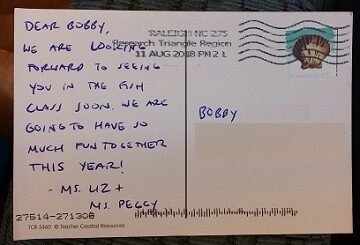 DEAR BOBBY,
WE ARE LOOKING
FORWARD TO SEEING
YOU IN THE FISH
CLASS SOON. WE ARE
GOING TO HAVE SO
MUCH FUN TOGETHER
THIS YEAR!
- MS. LIZ +
MS. PEGGY
RALEIGH NC 275
Research Triangle Region
11 AUG 2018 PM 2 L
BOBBY
27514-271308
TCR 5460 © Teacher Created Resources